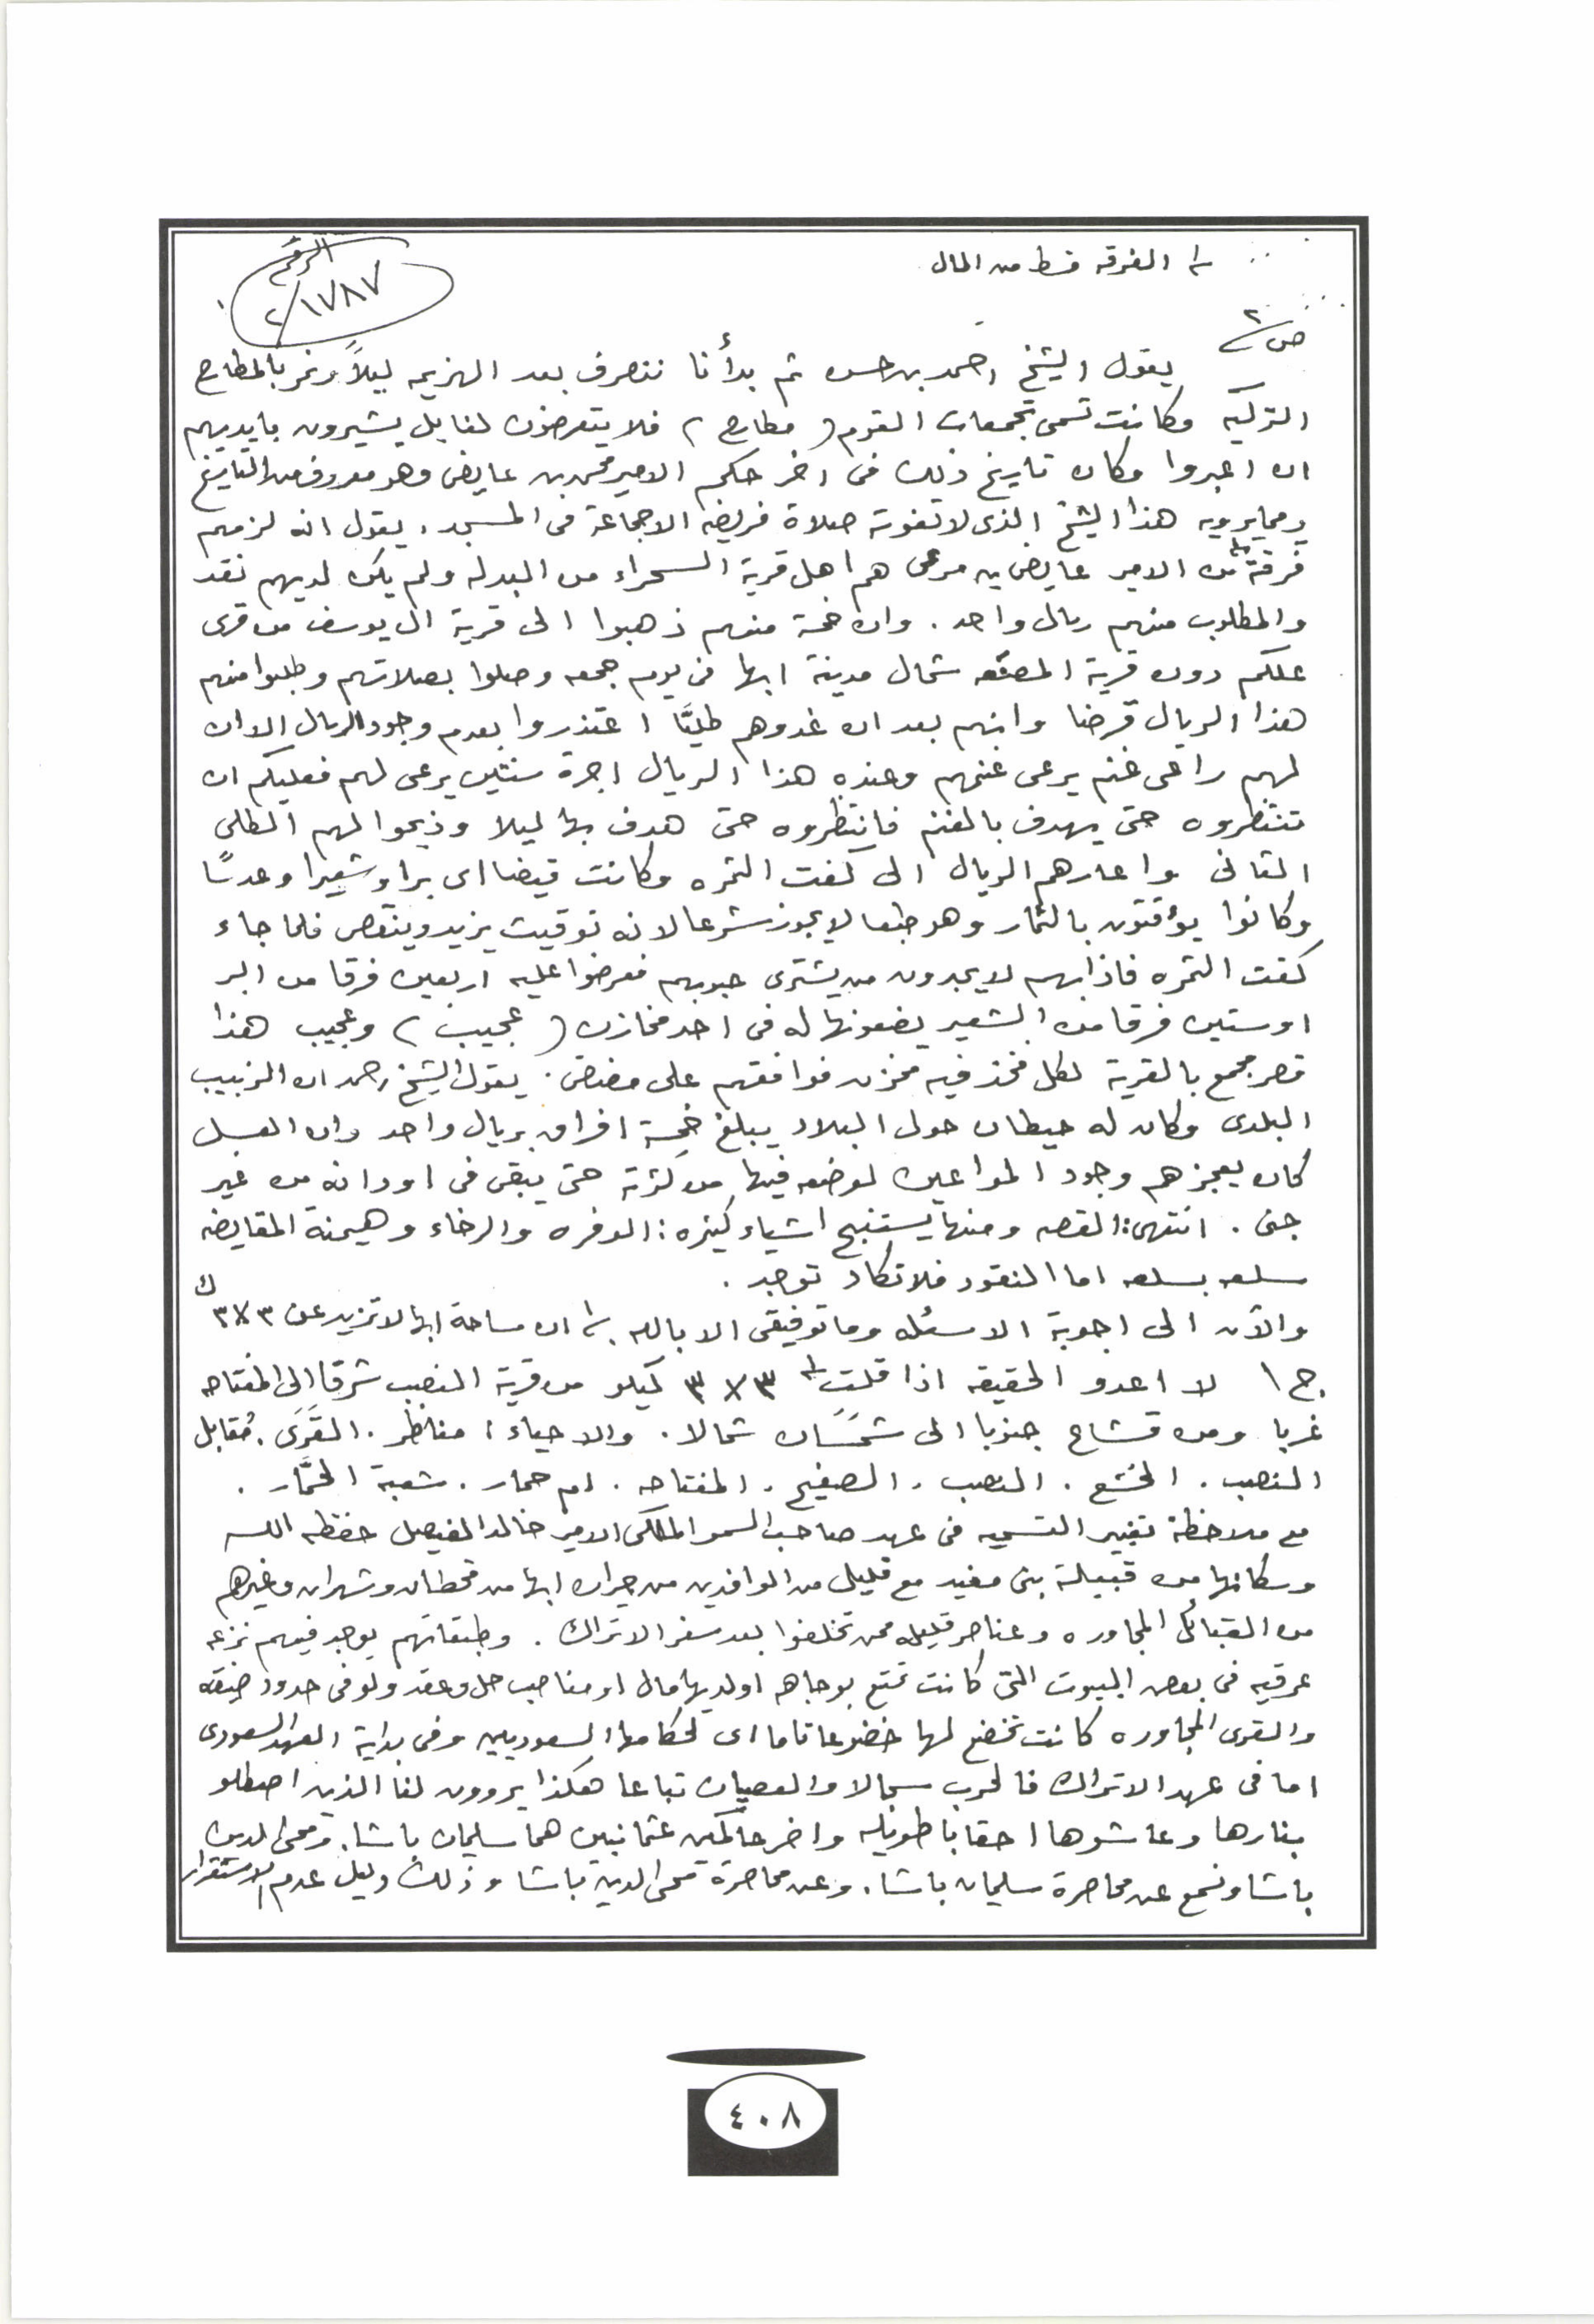 ١/ الفرقه قسط من المال
الرقم
٢/١٧٨٧
ص ٢
يقول الشيخ احمد بن حسن ثم بدأنا ننصرف بعد الهزيمه ليلاً ونمر بالمطارح
التركيه وكانت تسمى تجمعات القوم ( مطارح ) فلا يتعرضون لنا بل يشيرون بايديهم
ان اعبروا وكان تاريخ ذلك فى اخر حكم الامير محمد بن عايض وهو معروف من التاريخ
ومما يرويه هذا الشيخ الذى لا تفوته صلاة فريضه الا جماعة فى المسجد . يقول انه لزمهم
فرقة١/ من الامير عايض بن مرعى هم اهل قرية السحراء من البدله ولم يكن لديهم نقد
والمطلوب منهم ريال واحد . وان خمسة منهم ذهبوا الى قرية ال يوسف من قرى
علكم دون قرية المصنعه شمال مدينة ابها فى يوم جمعه وصلوا بصلاتهم وطلبوا منهم
هذا الريال قرضا وانهم بعد ان غدوهم طليًّا اعتذروا بعدم وجود الريال الا ان
لهم راعى غنم يرعى غنمهم وعنده هذا الريال اجرة سنتين يرعى لهم فعليكم ان
تنتظروه حتى يهدف بالغنم فانتظروه حتى هدف بها ليلا وذبحوا لهم الطلى
الثانى واعارهم الريال الى كفت الثمره وكانت قيضا اى برا وشعيرا وعدسًا
وكانوا يؤقتون بالثمار وهو طبعا لا يجوز شرعا لانه توقيت يزيد وينقص فلما جاء
كفت الثمره فاذا بهم لا يجدون من يشترى حبوبهم فعرضوا عليه اربعين فرقا من البر
او ستين فرقا من الشعير يضعونها له فى احد مخازن ( عجيب ) وعجيب هذا
قصر مجمع بالقرية لكل فخذ فيه مخزن فوافقهم على مضض . يقول الشيخ احمد ان الزبيب
البلدى وكان له حيطان حول البلاد يبلغ خمسة افراق بريال واحد وان العسل
كان يعجزهم وجود المواعين لوضعه فيها من كثرته حتى يبقى فى اودانه من غير
جنى . انتهى : القصه ومنها يستنبح اشياء كثيره : الوفره والرخاء وهيمنة المقايضه
سلعه بسلعه اما النقود فلا تكاد توجد .
والآن الى اجوبة الاسئله وما توفيقى الا بالله ١/ ان مساحة ابها لا تزيد عن ٣×٣ ك
ج ١ لا اعدو الحقيقه اذا قلت ٣×٣ كيلو من قرية النصب شرقا الى المفتاحه
غربا ومن قشاع جنوبا الى شمسان شمالا . والاحياء : مناظر . القَرَى . مُقابل
النصب . الخشع . النصب . الصفيح . المفتاحه . ام حمار . شعبة الحمَّار .
مع ملاحظة تغيير التسميه فى عهد صاحب السمو الملكى الامير خالد الفيصل حفظه الله
وسكانها من قبيلة بنى مغيد مع قليل من الوافدين من جيران ابها من قحطان وشهران وغيرهم
من القبائل المجاوره وعناصر قليله ممن تخلفوا بعد سفر الاتراك . وطبقاتهم يوجد فيهم نزعه
عرقيه فى بعض البيوت التى كانت تمتع بوجاهه او لديها مال او مناصب حل وعقد ولو فى حدود ضيقه
والقرى المجاوره كانت تخضع لها خضوعا تاما اى لحكامها السعوديين وفى بداية العهد السعودى
اما فى عهد الاتراك فالحرب سجالا والعصيان تباعا هكذا يروون لنا الذين اصطلو
بنارها وعاشوها احقابا طويله واخر حاكمين عثمانيين هما سليمان باشا . ومحى الدين
باشا ونسمع عن محاصرة سليمان باشا . وعن محاصرة محى الدين باشا وذلك دليل عدم الاستقرار
٤٠٨